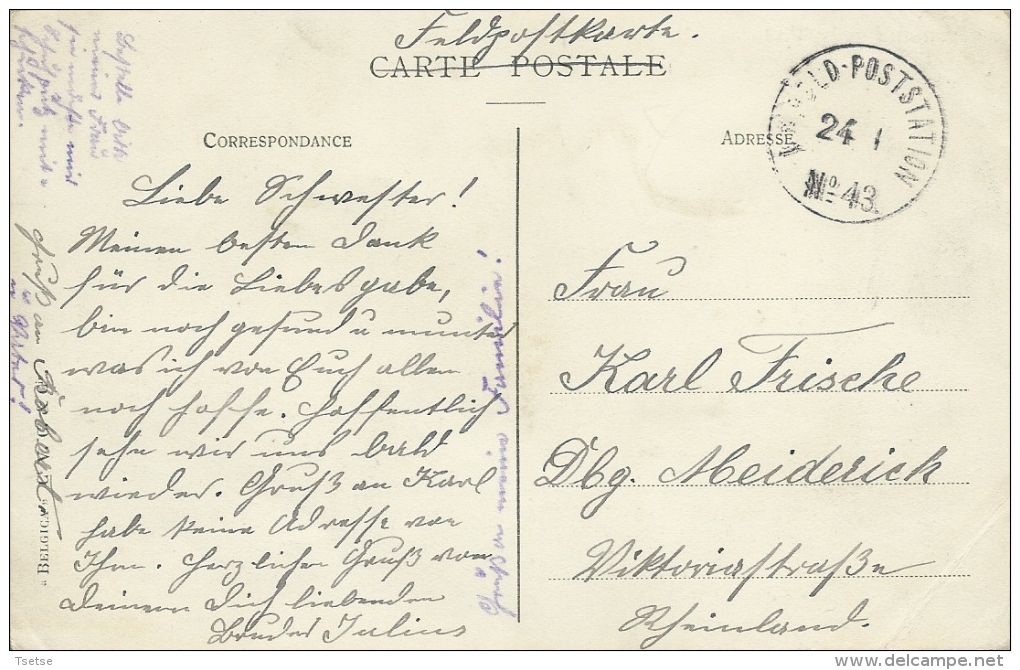 Feldpostkarte.
CARTE POSTALE
CORRESPONDANCE
ADRESSE
FELD-POSTSTATION
24 1
No 43.
Liebe Schwester!
Meinen besten Dank
für die Liebesgabe,
bin noch gesund u munter
was ich von Euch allen
noch hoffe. Hoffentlich
sehn wir uns bald
wieder. Gruß an Karl
habe keine Adresse von
Ihm. Herzlichen Gruß von
Deinem Dich liebenden
Bruder Julius
Frau
Karl Frische
Dbg. Meiderich
Viktoriastraße
Rheinland.
Bestelle bitte
meiner Frau
sie möchte mir
mit
Gruß an
Familie!
« BELGICA »
Tsetse
delcampe.net